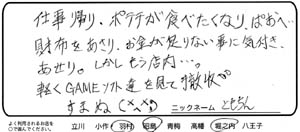 仕事帰り、ポテチが食べたくなり、ぱあへ…
財布をあさり、お金が足りない事に気付き、
あせり。しかしもう店内…。
軽くGAMEソフト達を見て撤収が
すまぬ(×.×)
ニックネーム ともちん
よく利用されるお店を
○で選んでください。
立川 小作 羽村 昭島 青梅 高幡 堀之内 八王子